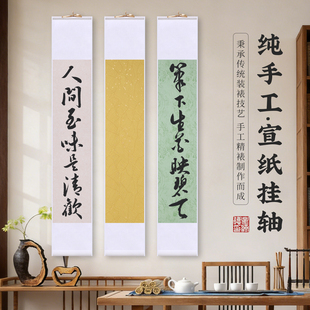 纯手工·宣纸挂轴
秉承传统装裱技艺 手工精裱制作而成
筆下生花映碧天
人間至味是清歡